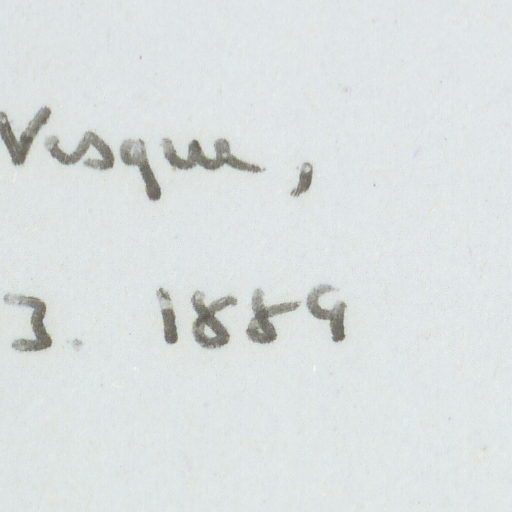 Vesque,
3. 1889